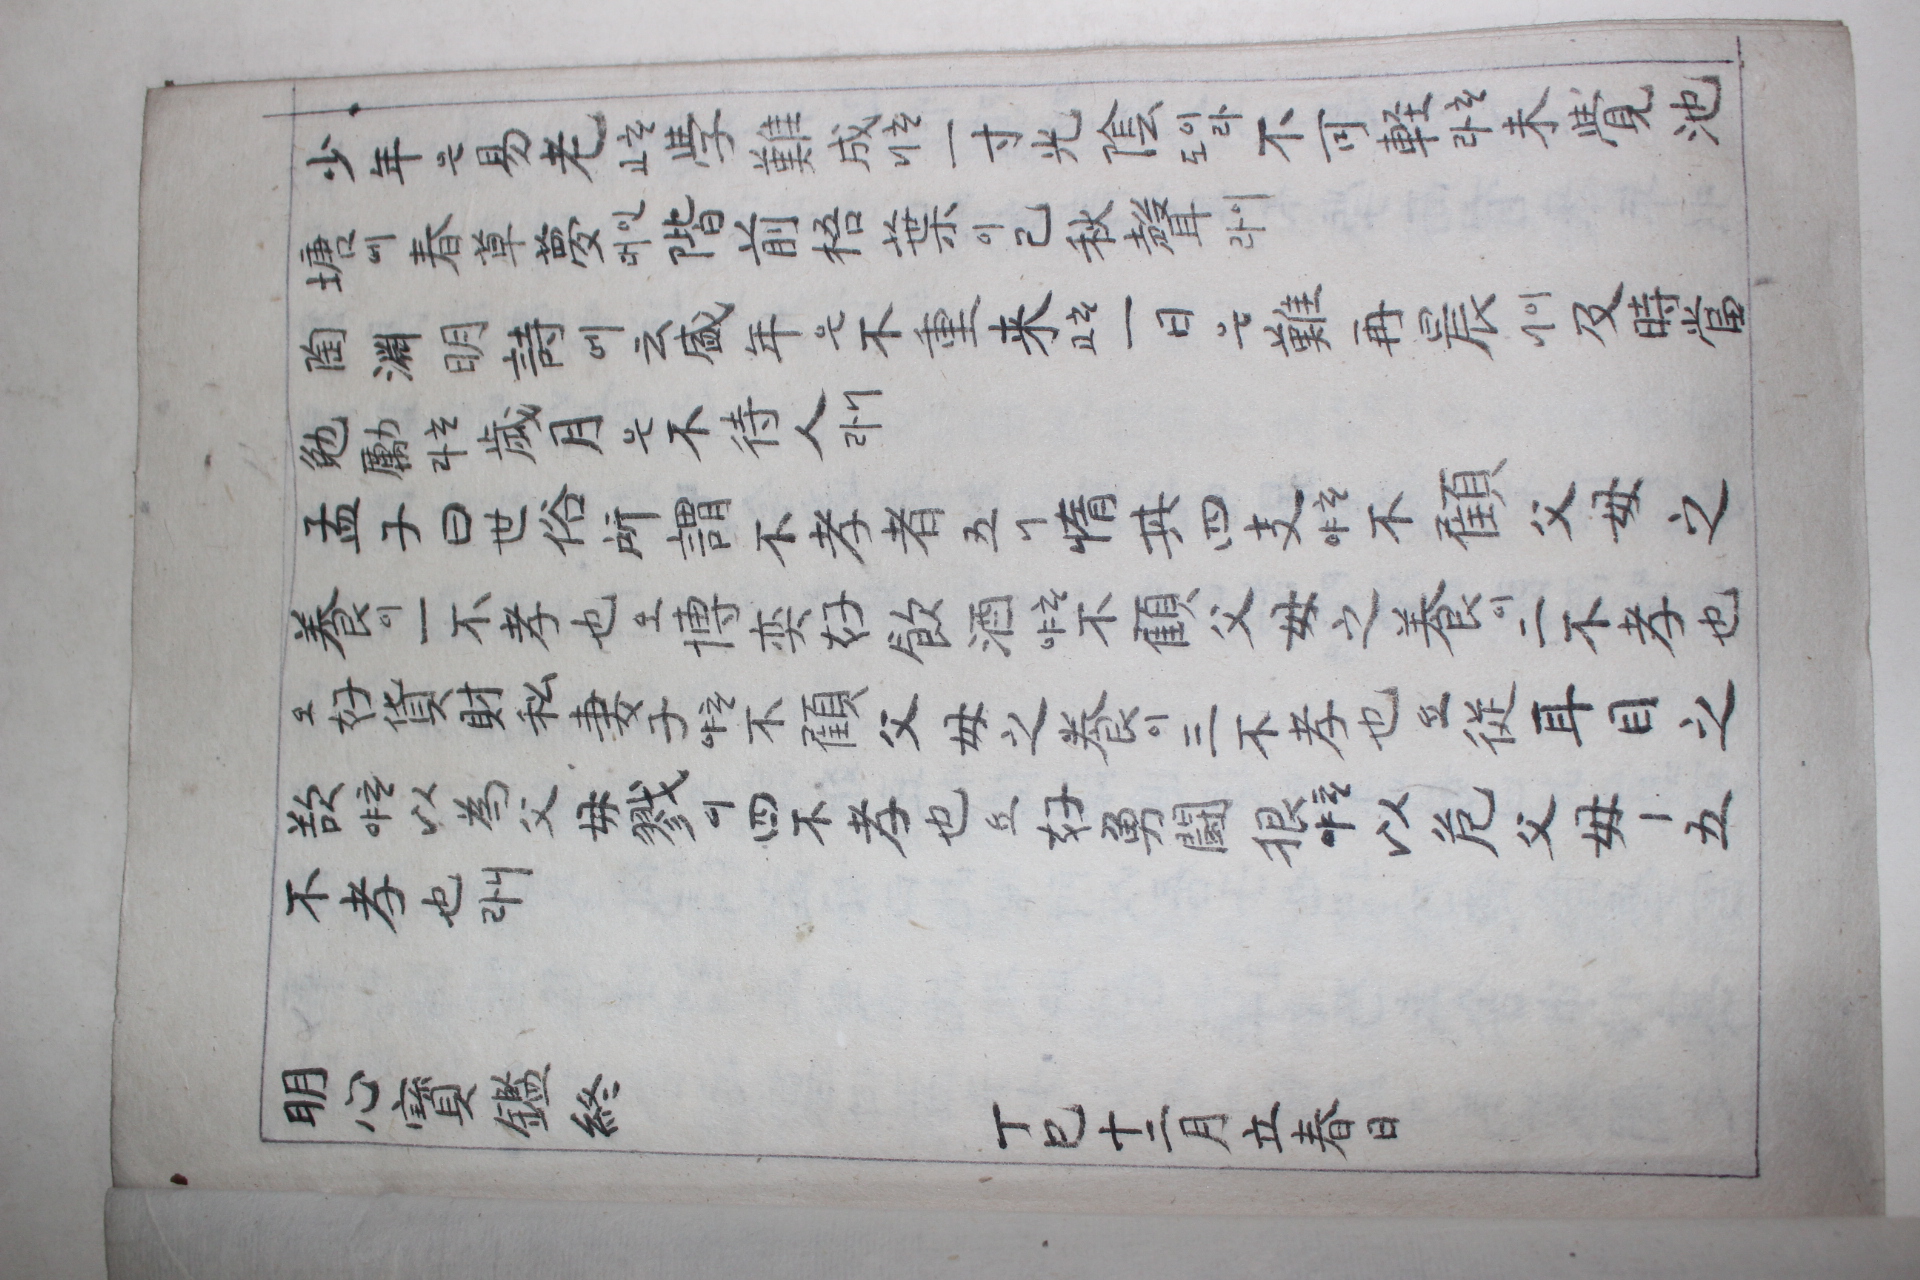 少年은易老요學難成이니一寸光陰이라도不可輕하라未覺池
塘에春草夢인대階前梧葉이已秋聲이라
陶淵明詩에云盛年은不重來요一日은難再晨이니及時當
勉勵하라歲月은不待人이라
孟子曰世俗所謂不孝者五ㅣ惰其四支하야不顧父母之
養이一不孝也요博奕好飮酒하야不顧父母之養이二不孝也
요好貨財私妻子하야不顧父母之養이三不孝也요從耳目之
欲하야以爲父母戮이四不孝也요好勇鬪狠하야以危父母ㅣ五
不孝也라
明心寶鑑終
丁巳十二月立春日